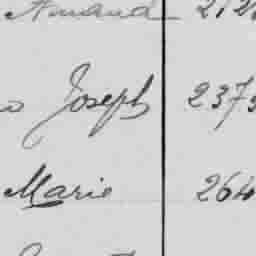 Amand 212
o Joseph 2373
Marie 264